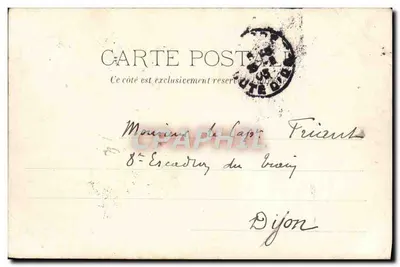 CARTE POST
Ce côté est exclusivement réserv
CÔTE D'OR
CPAPHIL
Monsieur le Capne Friant
8e Escadron du Train
Dijon